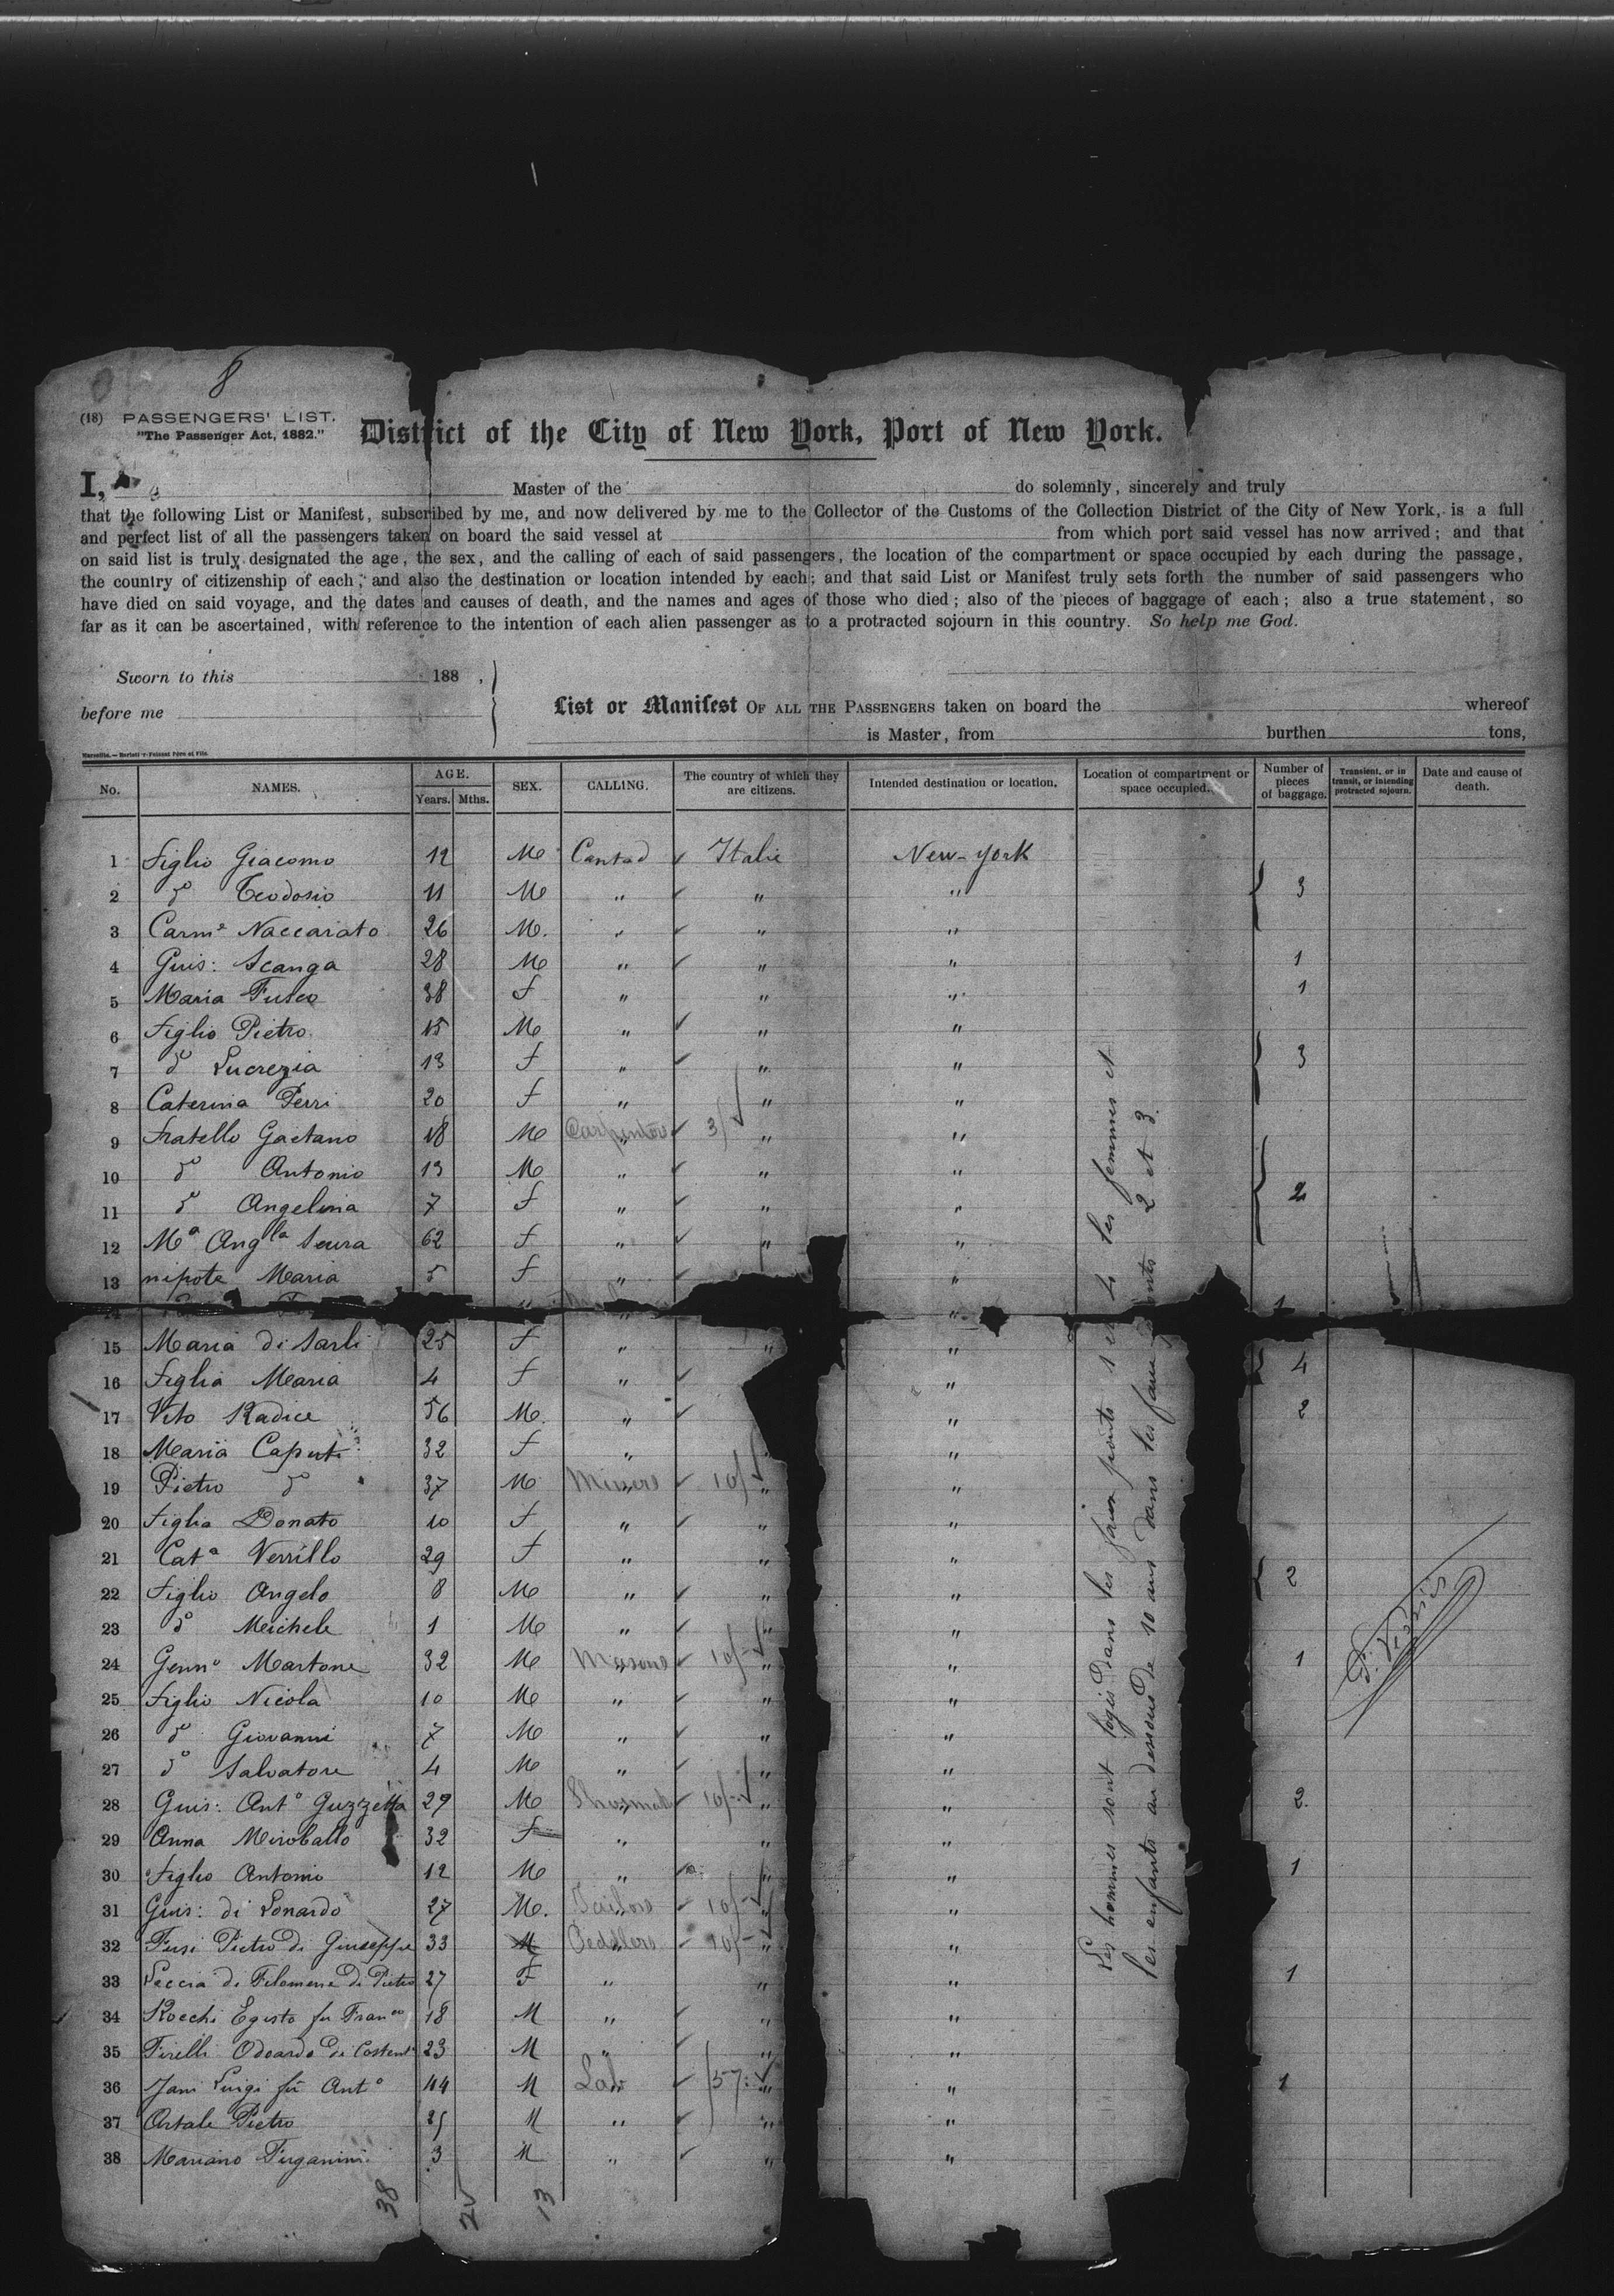 8
(18) PASSENGERS' LIST.
"The Passenger Act, 1882."
District of the City of New York, Port of New York.
I, Master of the do solemnly, sincerely and truly
that the following List or Manifest, subscribed by me, and now delivered by me to the Collector of the Customs of the Collection District of the City of New York, is a full
and perfect list of all the passengers taken on board the said vessel at from which port said vessel has now arrived; and that
on said list is truly designated the age, the sex, and the calling of each of said passengers, the location of the compartment or space occupied by each during the passage,
the counlry of citizenship of each; and also the destination or location intended by each; and that said List or Manifest truly sets forth the number of said passengers who
have died on said voyage, and the dates and causes of death, and the names and ages of those who died; also of the pieces of baggage of each; also a true statement, so
far as it can be ascertained, with reference to the intention of each alien passenger as to a protracted sojourn in this country. So help me God.
Sworn to this 188 ,
before me
List or Manifest OF ALL THE PASSENGERS taken on board the whereof
is Master, from burthen tons,
No. NAMES. AGE. Years. Mths. SEX. CALLING. The country of which they are citizens. Intended destination or location. Location of compartment or space occupied. Number of pieces of baggage. Transient, or in transit, or intending protracted sojourn. Date and cause of death.
1 figlio Giacomo 12 M Italie New-York
2 do Teodosio 11 M " " " 3
3 Carme Naccarato 26 M. " " "
4 Guis: Scanga 28 M " " " 1
5 Maria Fusco 38 f " " " 1
6 figlio Pietro 15 M " " "
7 do Lucrezia 13 f " " " 3
8 Caterina Perri 20 f " " "
9 fratello Gaetano 18 M Carpenters 3/ " "
10 do Antonio 13 M " " "
11 do Angelina 7 f " " " 2
12 Ma Angla Scura 62 f " " "
13 nipote Maria 5 f " "
14 " " 1
15 Maria di Sarli 25 f " " "
16 figlia Maria 4 f " " 4
17 Vito Radice 56 M. " " 2
18 Maria Caputi 32 f " "
19 Pietro do 37 M Miners 10/ " "
20 figlia Donato 10 f " " "
21 Cata Verrillo 29 f " " "
22 figlio Angelo 8 M " " " 2
23 do Meichele 1 M " " "
24 Genno Martone 32 M Masons 10/- " " 1
25 figlio Nicola 10 M " " "
26 do Giovanni 7 M " " "
27 do Salvatore 4 M " " "
28 Guis: Anto Guzzetta 29 M Shoemak 10/- " " 2.
29 Anna Miroballo 32 f " " "
30 figlio Antonio 12 M " " " 1
31 Guis: di Lonardo 27 M. Tailors 10/- " "
32 Fusi Pietro di Giuseppe 33 M Peddlers 10/- " "
33 Leccia di Filomene di Pietro 27 F " " " 1
34 Rocchi Egisto fu Franco 18 M " " "
35 Tirelli Odoardo di 23 M " " "
36 Jani Luigi fu Anto 44 M Lab 57: " " 1
37 Artale Pietro 25 M " " "
38 Mariano Firganini 3 M " " "
Les hommes sont logés dans les faux ponts 1 et 4 les femmes et
les enfants au dessous de 10 ans dans les faux ponts 2 et 3.
38 13